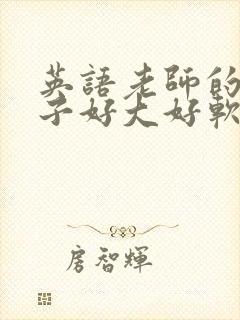 英語老師的
子好大好軟
房智輝